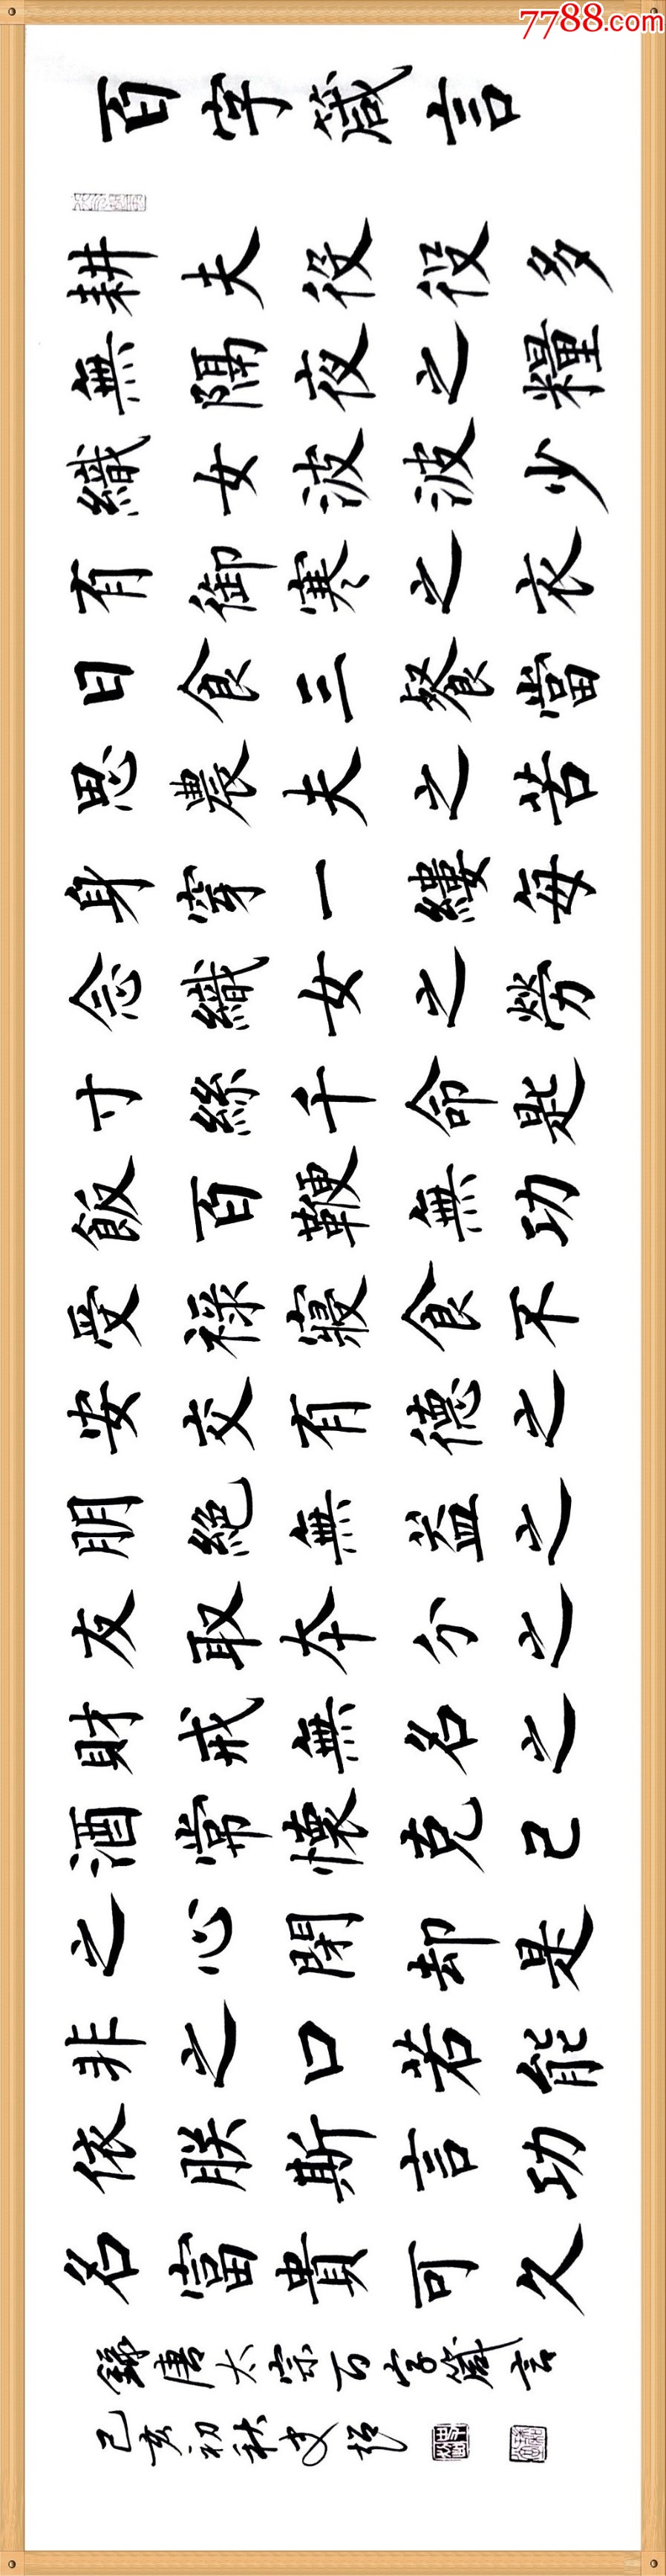 百字箴言
耕夫役役多
無隔夜之糧
織女波波少
有御寒之衣
日食三餐當
思農夫之苦
身穿一縷每
念織女之勞
寸絲千命匙
飯百鞭無功
受祿寢食不
安交有德之
朋絕無益之
友取本分之
財戒無名之
酒常懷克己
之心閉却是
非之口若能
依朕斯言功
名富貴可久
錄唐太宗百字箴言
己亥初秋
7788.com